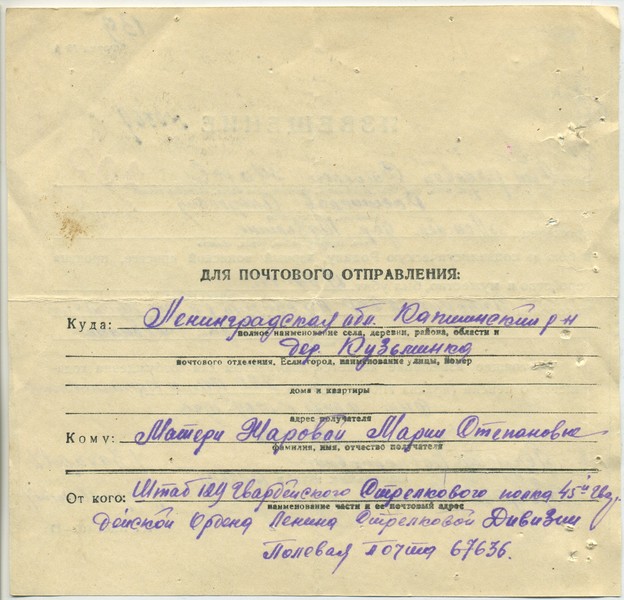 ИЗВЕЩЕНИЕ
ДЛЯ ПОЧТОВОГО ОТПРАВЛЕНИЯ:
Куда: Ленинградская обл. Капшинский р-н
полное наименование села, деревни, района, области и
дер. Кузьминка
почтового отделения, Если город, наименование улицы, номер
дома и квартиры
адрес получателя
Кому: Матери Жаровой Марии Степановне
фамилия, имя, отчество получателя
От кого: Штаб 129 Гвардейского Стрелкового полка 45й Гвар
наименование части и ее почтовый адрес
дейской Ордена Ленина Стрелковой Дивизии
Полевая почта 67636.